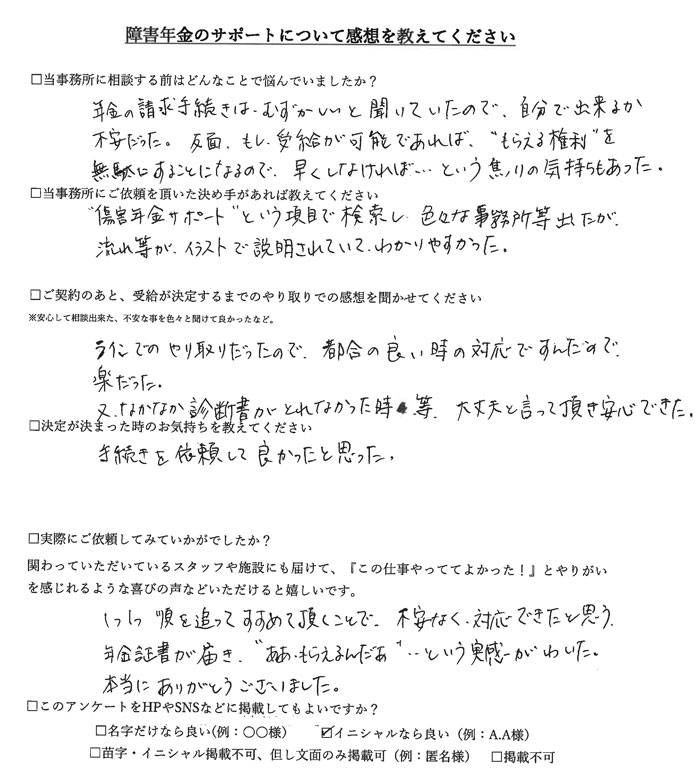 障害年金のサポートについて感想を教えてください
□当事務所に相談する前はどんなことで悩んでいましたか？
年金の請求手続きは、むずかしいと聞いていたので、自分で出来るか
不安だった。反面、もし受給が可能であれば、“もらえる権利”を
無駄にすることになるので、早くしなければ…という焦りの気持ちもあった。
□当事務所にご依頼を頂いた決め手があれば教えてください
“傷害年金サポート”という項目で検索し、色々な事務所等出たが、
流れ等が、イラストで説明されていて、わかりやすかった。
□ご契約のあと、受給が決定するまでのやり取りでの感想を聞かせてください
※安心して相談出来た、不安な事を色々と聞けて良かったなど。
ラインでのやり取りだったので、都合の良い時の対応ですんだので、
楽だった。
又、なかなか診断書がとれなかった時等、大丈夫と言って頂き安心できた。
□決定が決まった時のお気持ちを教えてください
手続きを依頼して良かったと思った。
□実際にご依頼してみていかがでしたか？
関わっていただいているスタッフや施設にも届けて、『この仕事やっててよかった！』とやりがい
を感じれるような喜びの声などいただけると嬉しいです。
1つ1つ順を追ってすすめて頂くことで、不安なく、対応できたと思う。
年金証書が届き、“ああ、もらえるんだあ”…という実感がわいた。
本当にありがとうございました。
□このアンケートをHPやSNSなどに掲載してもよいですか？
□名字だけなら良い(例：〇〇様） ☑イニシャルなら良い（例：A.A様）
□苗字・イニシャル掲載不可、但し文面のみ掲載可（例：匿名様） □掲載不可